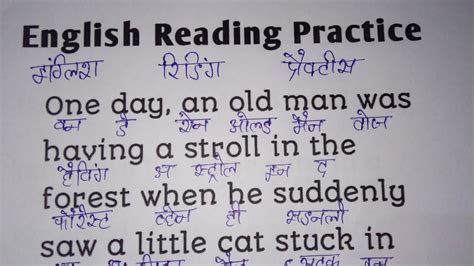 English Reading Practice
इंग्लिश रिडिंग प्रैक्टीस
One day, an old man was
वन डे ऐन ओल्ड मैन वोज
having a stroll in the
हैविंग अ स्ट्रोल इन द
forest when he suddenly
फोरैस्ट व्हेन ही सडनली
saw a little cat stuck in